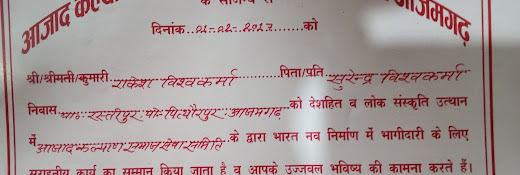 आजाद कल्या आजमगढ़
के सौजन्य से
दिनांक..02-02-2023.......को
श्री/श्रीमती/कुमारी. राकेश विश्वकर्मा............पिता/पति. सुरेन्द्र विश्वकर्मा
निवास ग्रा०-रस्तीपुर-पो०-पिथौरपुर-आजमगढ़-को देशहित व लोक संस्कृति उत्थान
में आजाद कल्याण समाज सेवा समिति.के द्वारा भारत नव निर्माण में भागीदारी के लिए
सराहनीय कार्य का सम्मान किया जाता है व आपके उज्जवल भविष्य की कामना करते हैं।